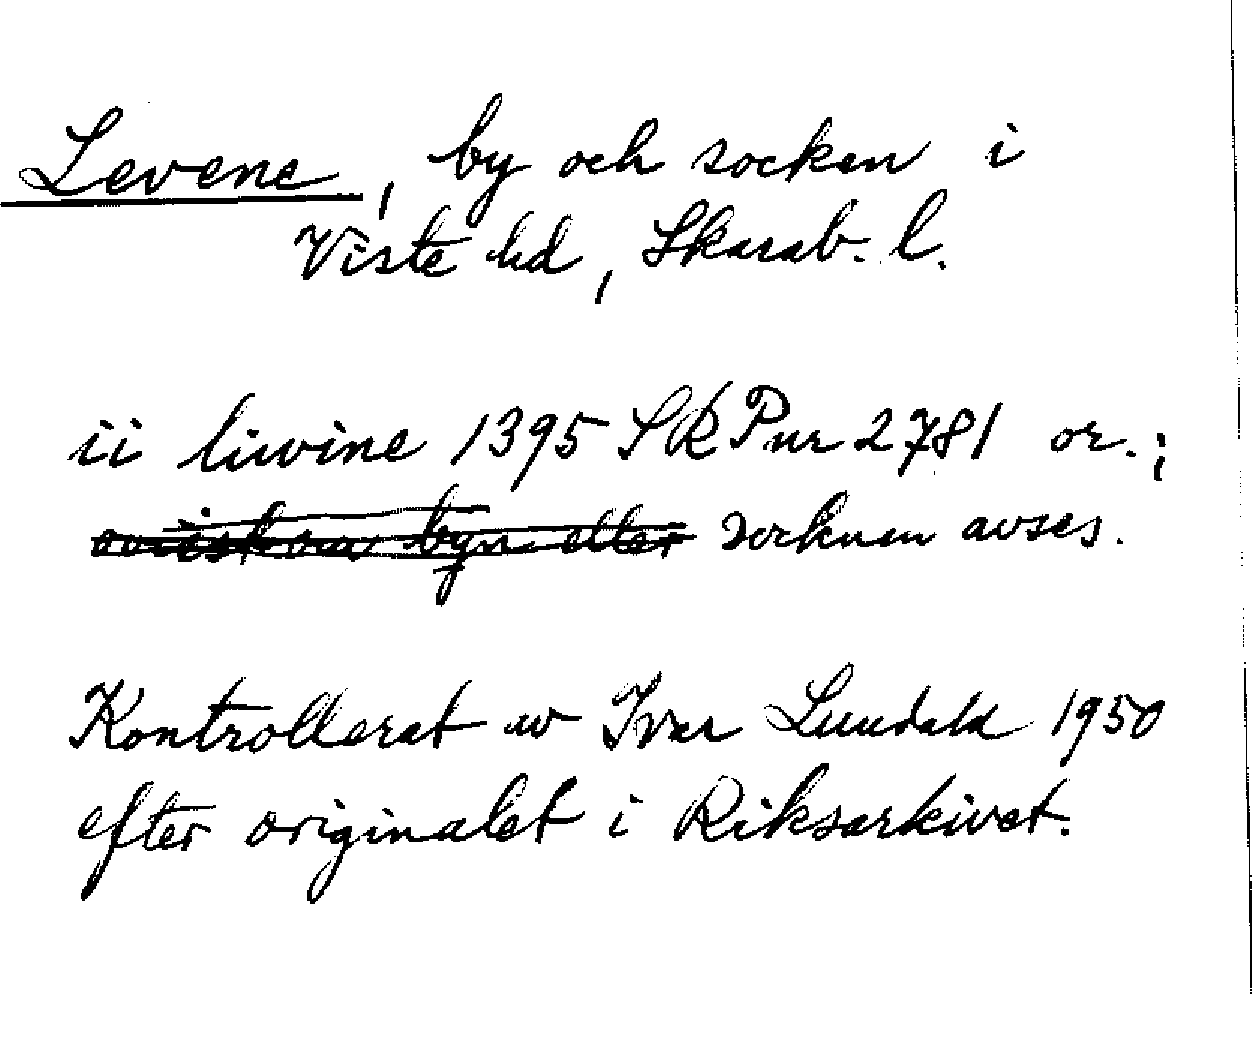 Levene, by och socken i
Viste hd, Skarab. l.
ii liwine 1395 SRP nr 2781 or.;
ovisst om byn eller socknen avses.
Kontrollerat av Ivar Lundahl 1950
efter originalet i Riksarkivet.